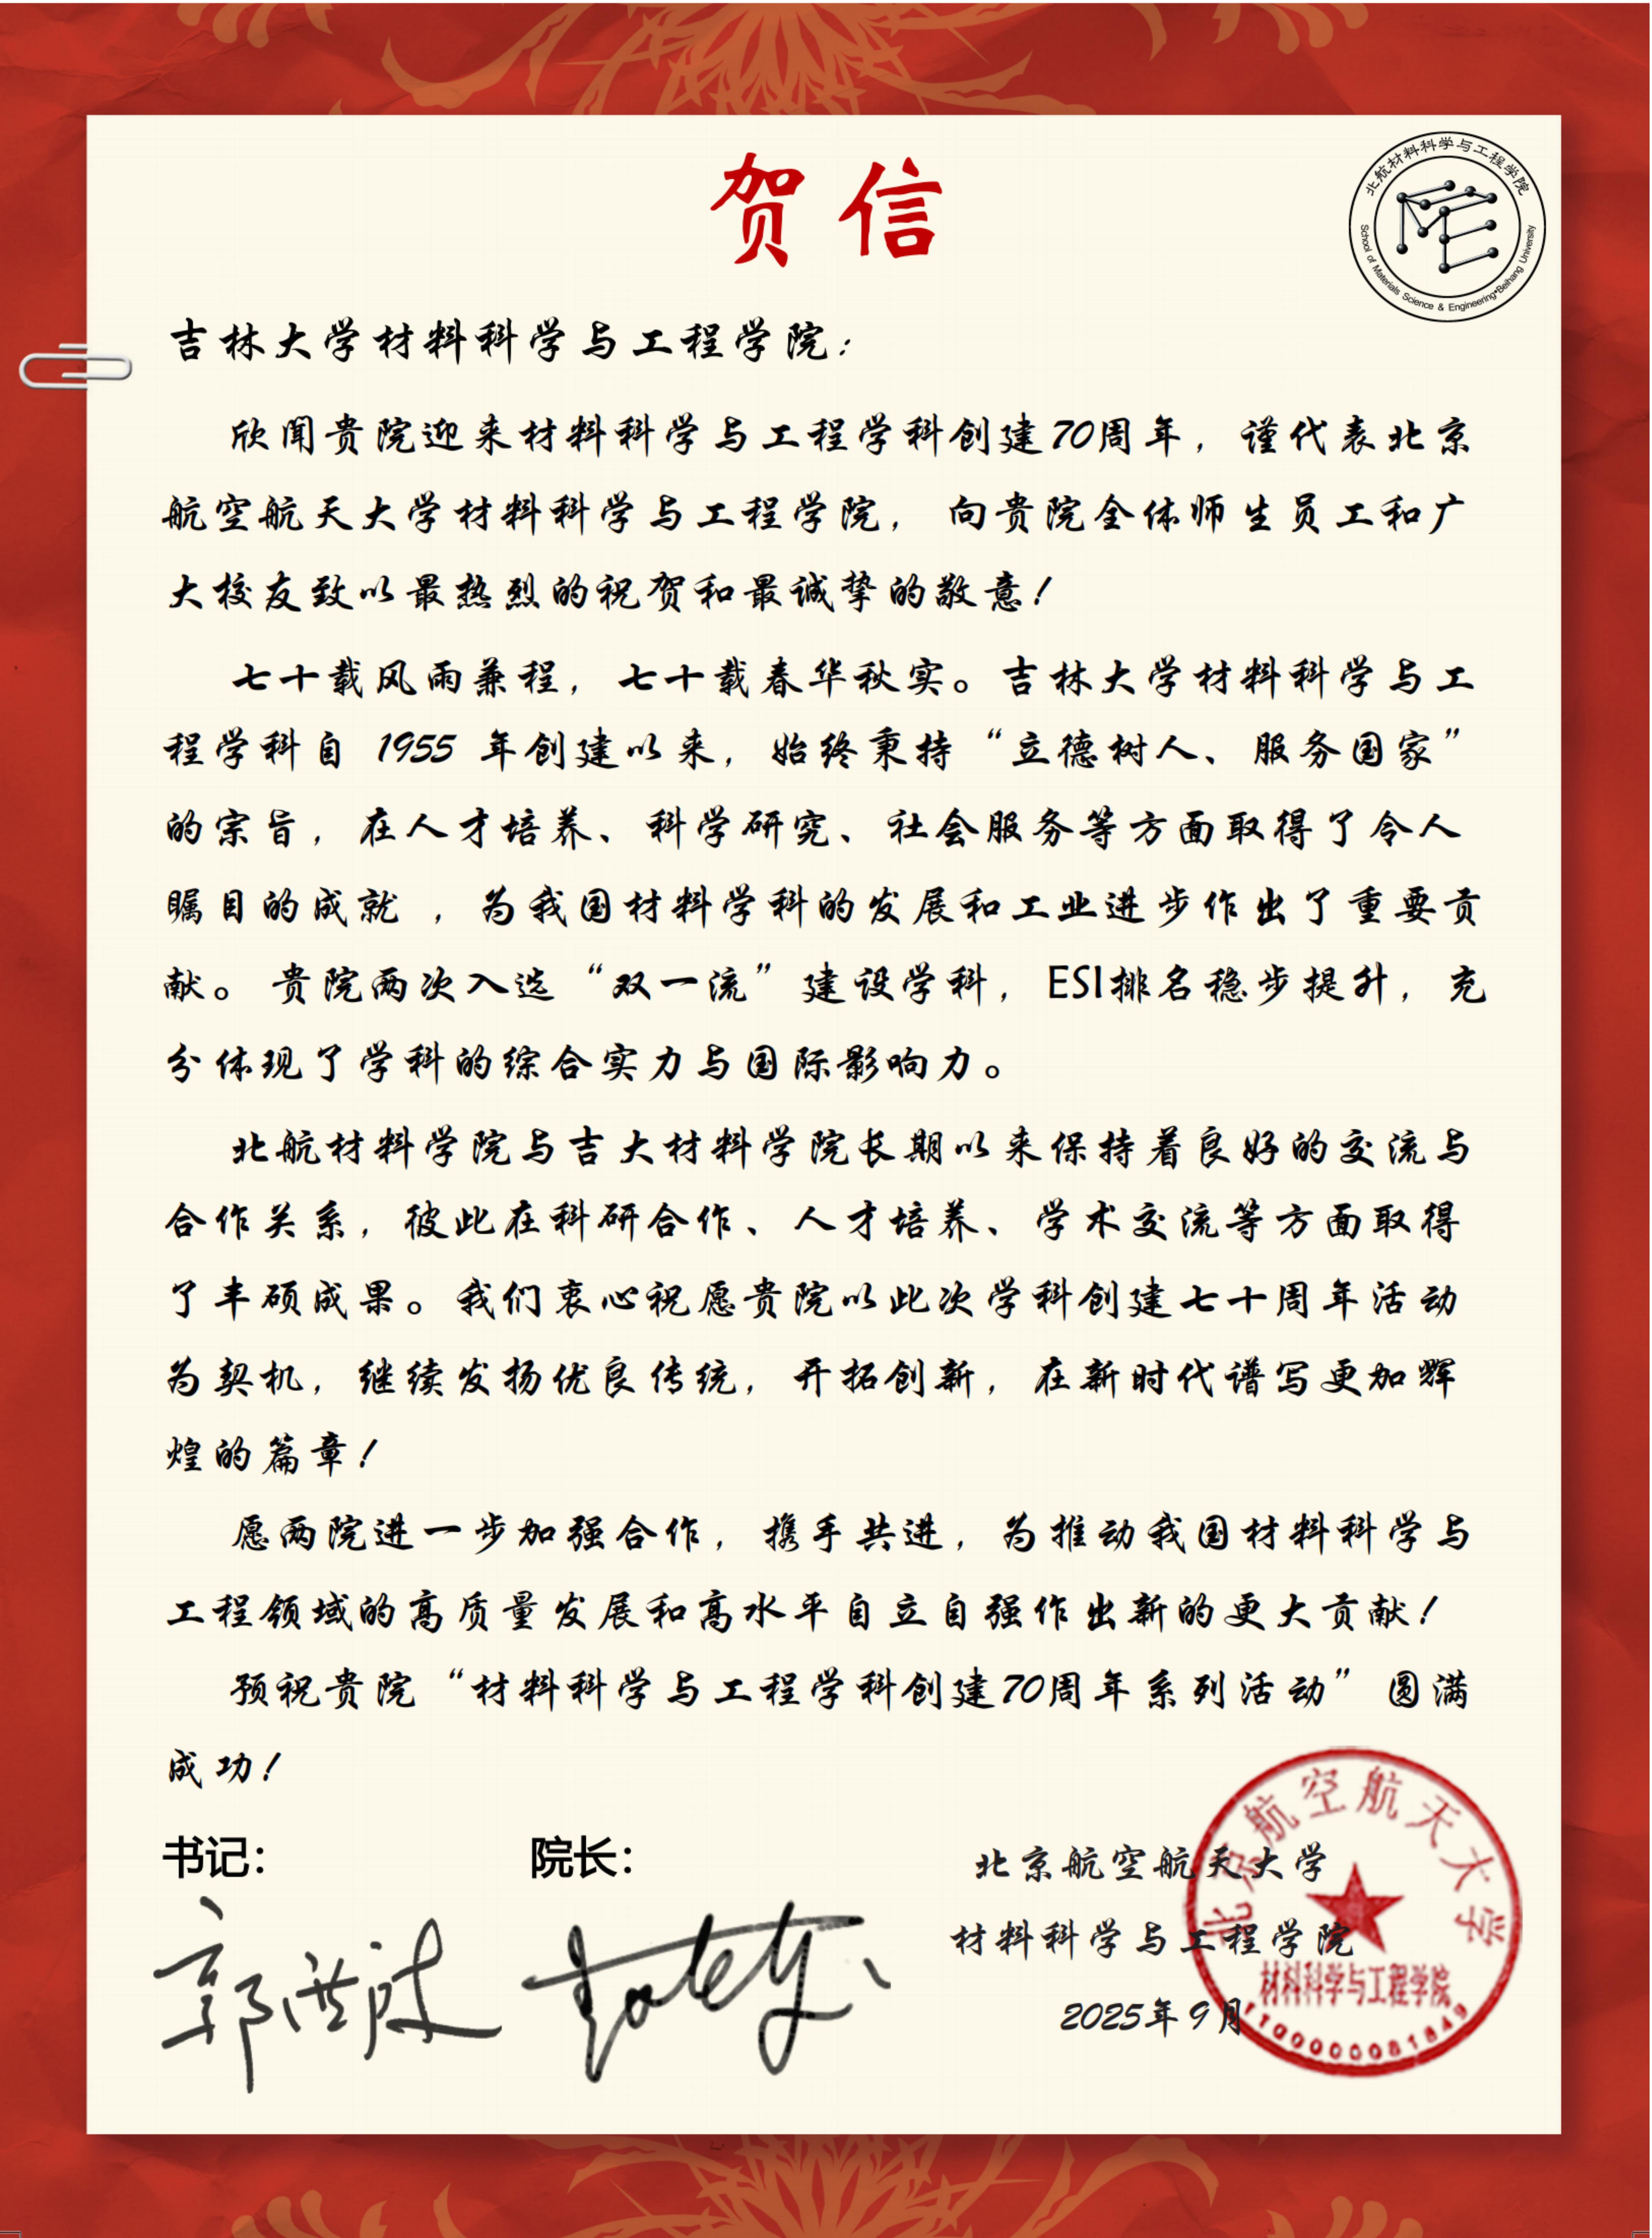 贺信
北航材料科学与工程学院
School of Materials Science & Engineering•Beihang University
吉林大学材料科学与工程学院：
欣闻贵院迎来材料科学与工程学科创建70周年，谨代表北京
航空航天大学材料科学与工程学院，向贵院全体师生员工和广
大校友致以最热烈的祝贺和最诚挚的敬意！
七十载风雨兼程，七十载春华秋实。吉林大学材料科学与工
程学科自 1955 年创建以来，始终秉持“立德树人、服务国家”
的宗旨，在人才培养、科学研究、社会服务等方面取得了令人
瞩目的成就 ，为我国材料学科的发展和工业进步作出了重要贡
献。贵院两次入选“双一流”建设学科，ESI排名稳步提升，充
分体现了学科的综合实力与国际影响力。
北航材料学院与吉大材料学院长期以来保持着良好的交流与
合作关系，彼此在科研合作、人才培养、学术交流等方面取得
了丰硕成果。我们衷心祝愿贵院以此次学科创建七十周年活动
为契机，继续发扬优良传统，开拓创新，在新时代谱写更加辉
煌的篇章！
愿两院进一步加强合作，携手共进，为推动我国材料科学与
工程领域的高质量发展和高水平自立自强作出新的更大贡献！
预祝贵院“材料科学与工程学科创建70周年系列活动”圆满
成功！
书记： 院长：
北京航空航天大学
材料科学与工程学院
2025年9月
北京航空航天大学
材料科学与工程学院
1100000081849